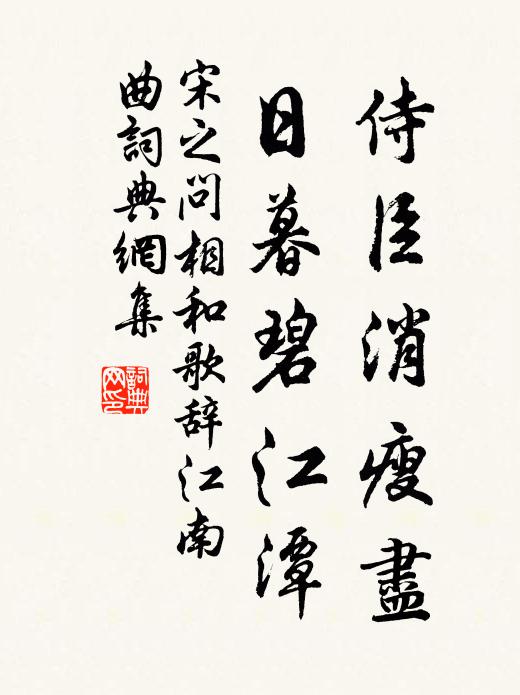 侍臣消瘦盡
日暮碧江潭
宋之問相和歌辞江南
曲詞典網集
詞典网印